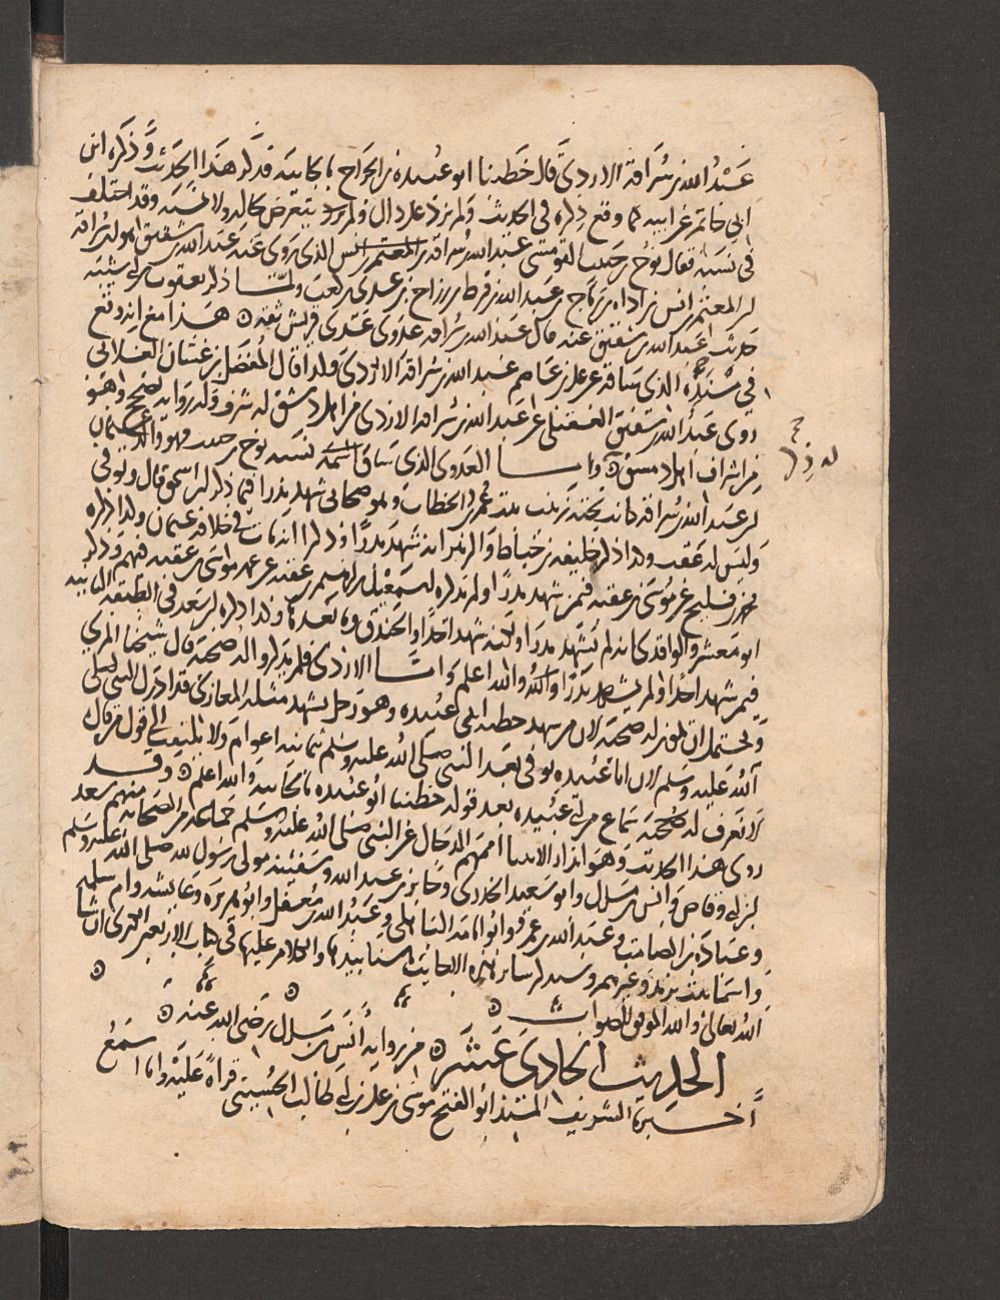 عبد الله بن سراقة الازدي قال خطبنا ابو عبيدة بن الجراح بالجابية فذكر هذا الحديث وذكره ابن
ابي حاتم عن ابيه كما وقع ذكره في الحديث ولم يزد على ذلك ولم يتعرض لحاله ولا لنسبه وقد اختلف
في نسبه فقال نوح بن حبيب القومسي عبد الله بن سراقة بن المعتمر بن انس الذي روى عنه عبد الله بن شقيق هو ابن سراقة
بن المعتمر بن انس بن اداه بن رياح بن عبد الله بن قرط بن رزاح بن عدي بن كعب ولما ذكر يعقوب بن شيبة
حديث عبد الله بن شقيق عنه قال عبد الله بن سراقة عدوي عدي قريش ثقة هذا مع انه وقع
في مسنده الذي ساقه عن علي بن عاصم عبد الله بن سراقة الازدي ولذا قال المفضل بن غسان الغلابي
روى عبد الله بن شقيق العقيلي عن عبد الله بن سراقة الازدي من اهل دمشق له شرف وله رواية تصح وهو
من اشراف اهل دمشق واما العدوي الذي ساق نسبه نوح بن حبيب فهو والد عثمان
بن عبد الله بن سراقة كانت تحته زينب بنت عمر بن الخطاب وهو صحابي شهد بدرا فيما ذكر ابن اسحق قال وتوفي
وليس له عقب وكذا ذكر خليفة بن خياط والزبير انه شهد بدرا وذكرا انه مات في خلافة عثمان وكذا ذكره
محمد بن فليح عن موسى بن عقبة فيمن شهد بدرا ولم يذكره اسمعيل بن ابراهيم بن عقبة عن عمه موسى بن عقبة فيهم وذكر
ابو معشر والواقدي انه لم يشهد بدرا ولكنه شهد احدا والخندق وما بعدها وكذا ذكره ابن سعد في الطبقة الثانية
فيمن شهد احدا ولم يشهد بدرا والله اعلم واما الازدي فلم يذكروا له صحبة قال شيخنا المزي
ويحتمل ان تكون له صحبة لان من شهد خطبة ابي عبيدة وهو رجل يشهد مثله المغازي قد ادرك النبي صلى
الله عليه وسلم لان ابا عبيدة توفي بعد النبي صلى الله عليه وسلم بثمانية اعوام ولا يلتفت الى قول من قال
لا نعرف له صحبة سماع من ابي عبيدة بعد قوله خطبنا ابو عبيدة بالجابية والله اعلم وقد
روى هذا الحديث وهو انذار الانبيا اممهم الدجال عن النبي صلى الله عليه وسلم جماعة من الصحابة منهم سعد
بن ابي وقاص وانس بن مالك وابو سعيد الخدري وجابر بن عبد الله وسفينة مولى رسول الله صلى الله عليه وسلم
وعبادة بن الصامت وعبد الله بن عمر وابو امامة الباهلي وعبد الله بن مغفل وابو هريرة وعايشة وام سلمة
واسما بنت يزيد وغيرهم وسنذكر ساير هذه الاحاديث باسانيدها والكلام عليها في كتاب الاربعين الكبرى ان شا
الله تعالى والله الموفق للصواب
الحديث الحادي عشر من رواية انس بن مالك رضي الله عنه
اخبرنا الشريف المسند ابو الفتح موسى بن علي بن ابي طالب الحسيني قراة عليه وانا اسمع